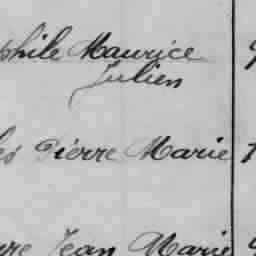 phile Maurice
Julien
es Pierre Marie
rre Jean Marie